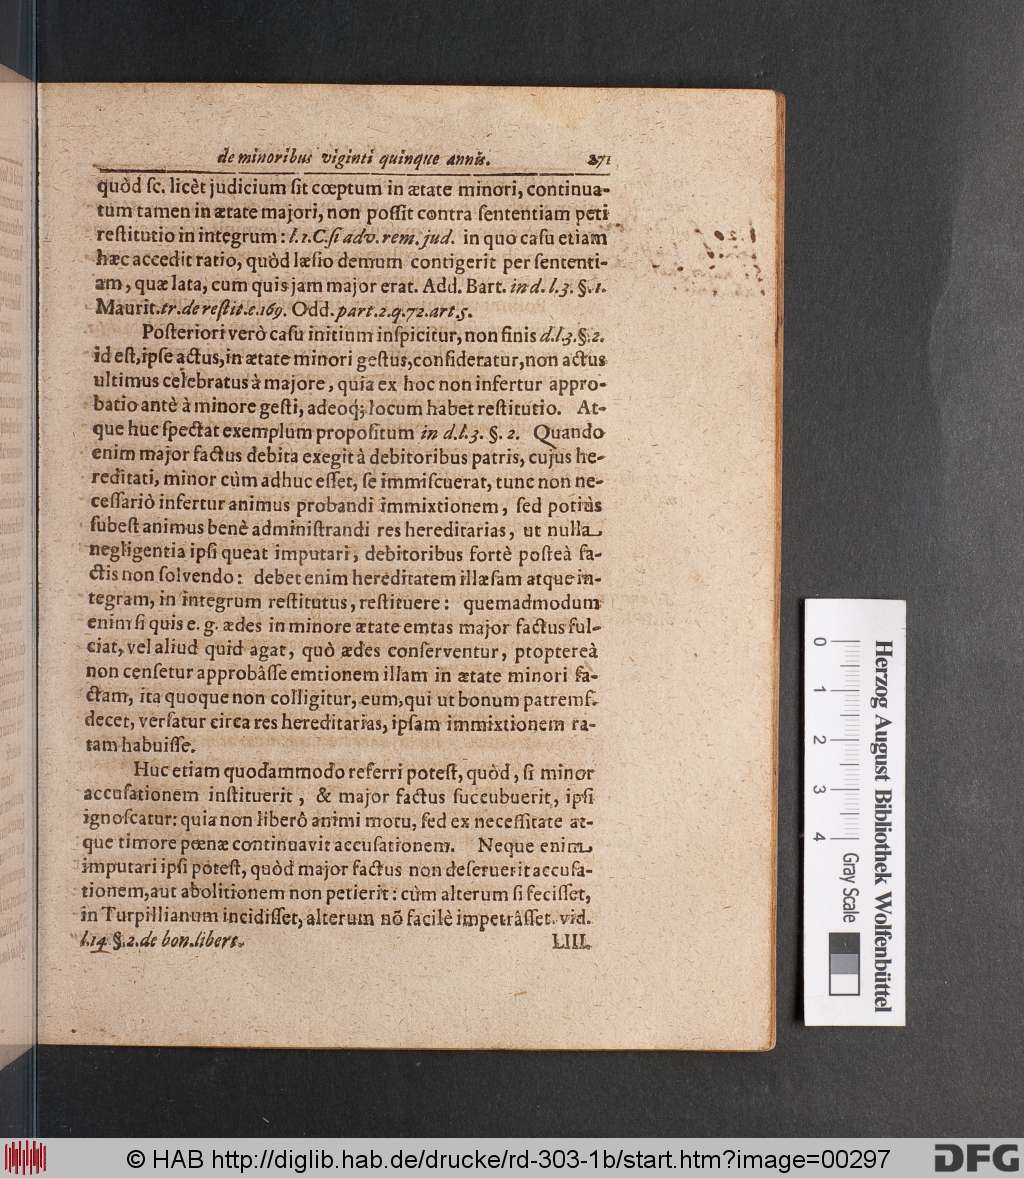 de minoribus viginti quinque annis. 271
quòd sc. licèt judicium sit cœptum in ætate minori, continua-
tum tamen in ætate majori, non possit contra sententiam peti
restitutio in integrum: l.1.C.si adv. rem. jud. in quo casu etiam
hæc accedit ratio, quòd læsio demum contigerit per sententi-
am, quæ lata, cum quis jam major erat. Add. Bart. in d. l.3. §.1.
Maurit. tr. de restit. c.169. Odd. part.2.q.72.art.5.
Posteriori verò casu initium inspicitur, non finis d.l.3.§.2.
id est, ipse actus, in ætate minori gestus, consideratur, non actus
ultimus celebratus à majore, quia ex hoc non infertur appro-
batio antè à minore gesti, adeoq; locum habet restitutio. At-
que huc spectat exemplum propositum in d.l.3. §. 2. Quando
enim major factus debita exegit à debitoribus patris, cujus he-
reditati, minor cùm adhuc esset, se immiscuerat, tunc non ne-
cessariò infertur animus probandi immixtionem, sed potiùs
subest animus benè administrandi res hereditarias, ut nulla
negligentia ipsi queat imputari, debitoribus fortè posteà fa-
ctis non solvendo: debet enim hereditatem illæsam atque in-
tegram, in integrum restitutus, restituere: quemadmodum
enim si quis e. g. ædes in minore ætate emtas major factus ful-
ciat, vel aliud quid agat, quò ædes conserventur, ptoptereà
non censetur approbâsse emtionem illam in ætate minori fa-
ctam, ita quoque non colligitur, eum, qui ut bonum patremf.
decet, versatur circa res hereditarias, ipsam immixtionem ra-
tam habuisse.
Huc etiam quodammodo referri potest, quòd, si minor
accusationem instituerit, & major factus succubuerit, ipsi
ignoscatur: quia non liberô animi motu, sed ex necessitate at-
que timore pœnæ continuavit accusationem. Neque enim
imputari ipsi potest, quòd major factus non deseruerit accusa-
tionem, aut abolitionem non petierit: cùm alterum si fecisset,
in Turpillianum incidisset, alterum nō facilè impetrâsset. vid.
l.14. §.2. de bon. libert. LIII.
0 1 2 3 4 Gray Scale
Herzog August Bibliothek Wolfenbüttel
© HAB http://diglib.hab.de/drucke/rd-303-1b/start.htm?image=00297
DFG